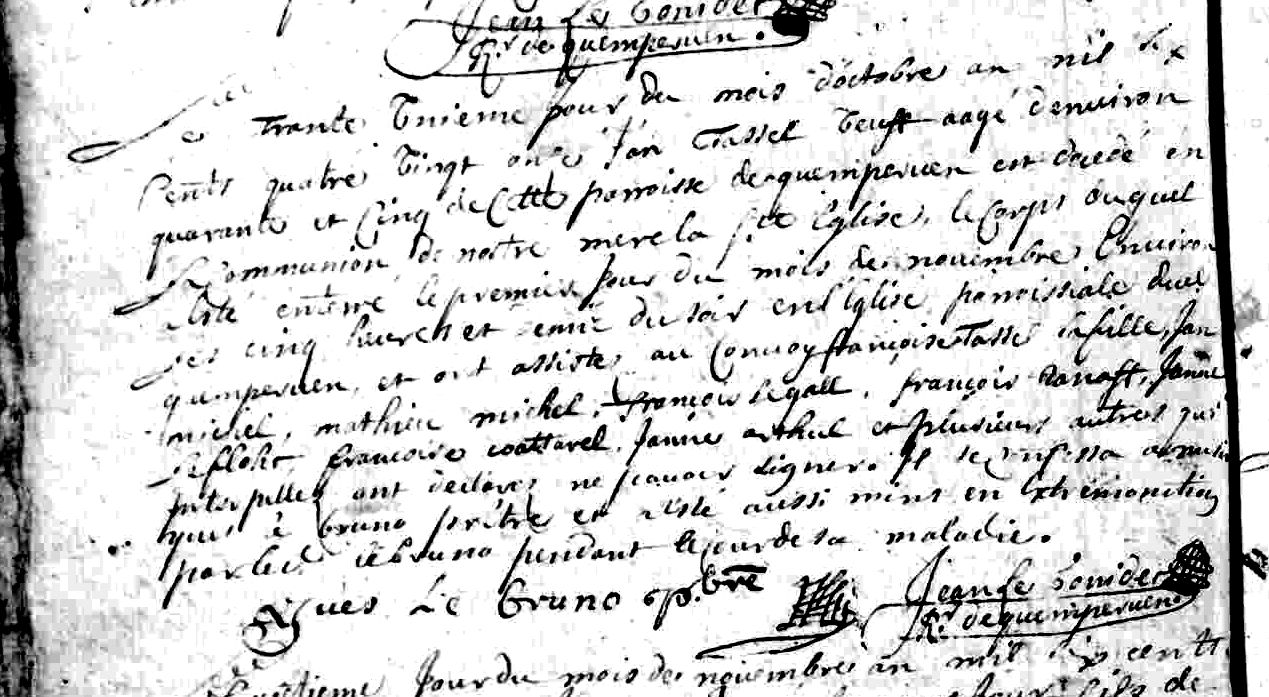 Jean Le Gonidec
R.r de quemperven.
Le trante Unieme jour du mois d'octobre an mil six
cents quatre vingt onze Jan Tassel veuff aagé d'environ
quarante et cinq de cette parroisse de quemperven est decedé en
la Communion de nostre mere la s.te Eglise, le corps duquel
a esté enterré le premier jour du mois de novembre Environ
les cinq heures et demie du soir en l'Eglise parroissiale dud
quemperven, et ont assistes au Convoy françoise Tassel sa fille, Jan
michel, mathieu michel, françois le gall, françois, Janne
le flohic, françoise coattarel, Janne arthul et plusieurs autres qui
interpelles ont declares ne scavoir signer. Il se confessa a
yves le bruno prêtre et a esté aussi mins en Extremonction
par led le bruno pendant le jour de sa maladie.
Yves Le bruno p.bre
Jean Le Gonidec
R.r de quemperven
jour du mois de novembre an mil six cents